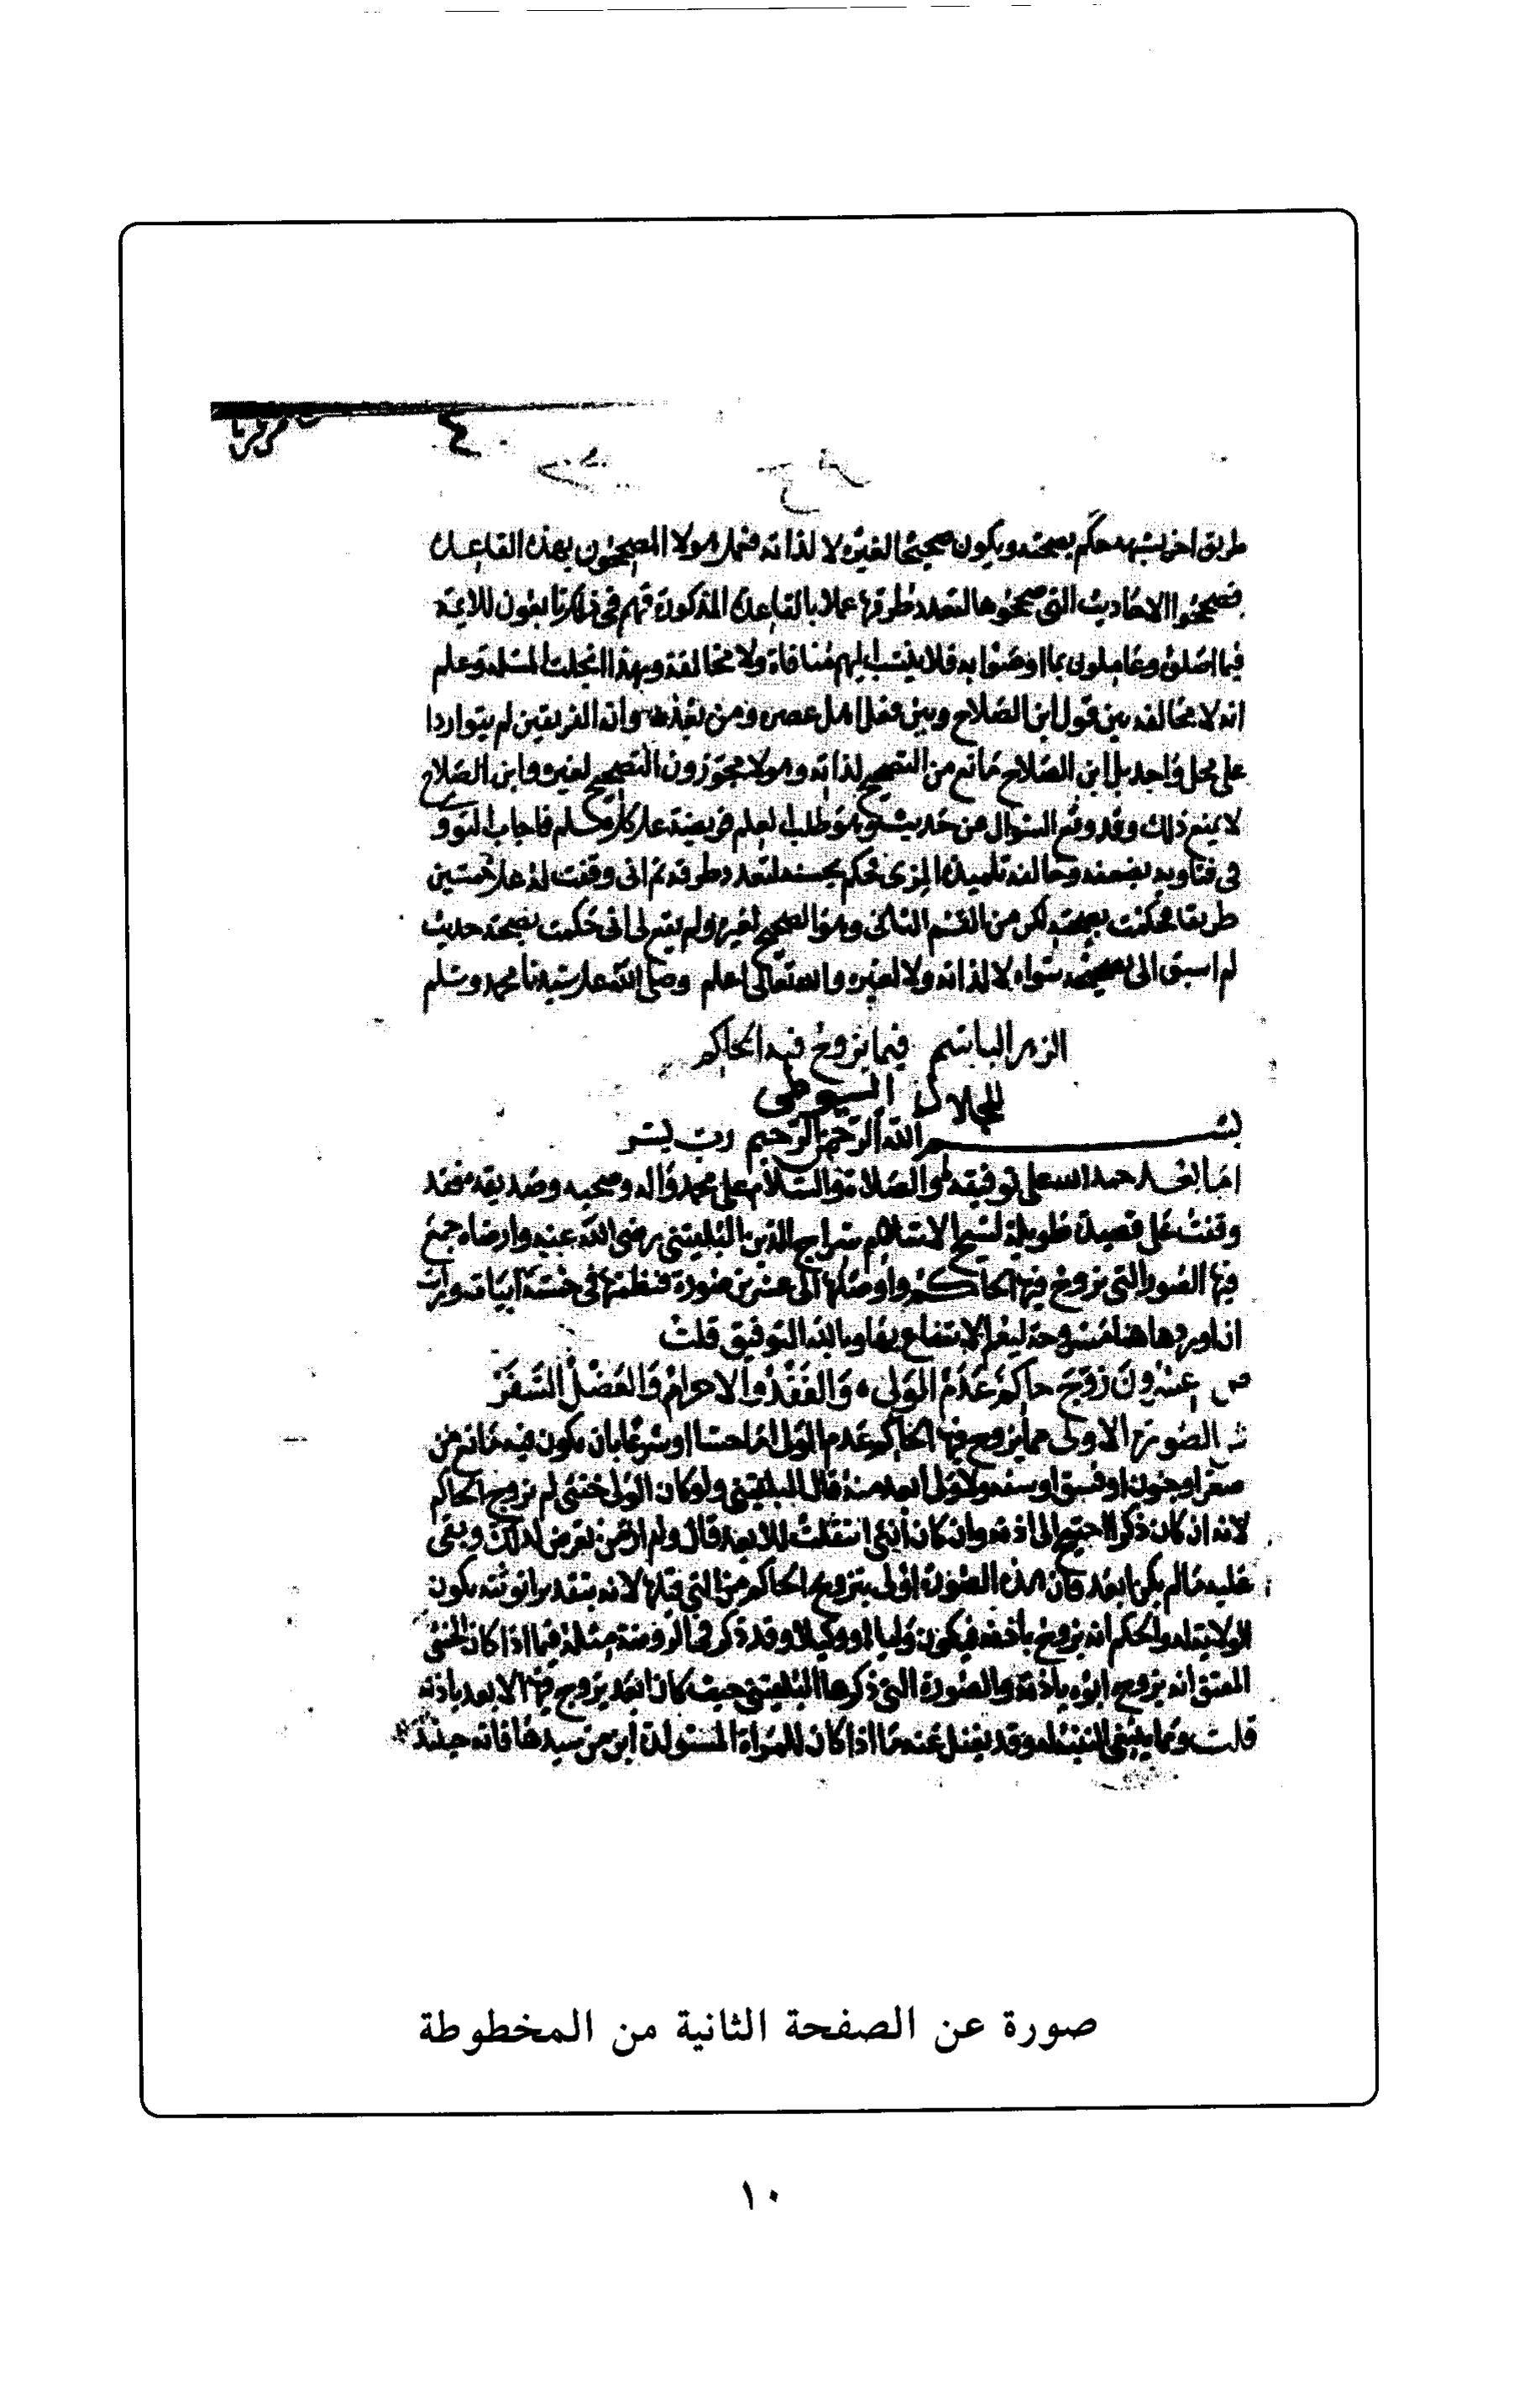 طريق اخر يشهد حكم بصحته ويكون صحيحا لغيره لا لذاته فعمل هولا المصححون بهذه القاعدة
فصححوا الاحاديث التي صححوها لتعدد طرقها عملا بالقاعدة المذكورة فهم في ذلك تابعون للايمة
فيما اصلوه وعاملون بما اوصوا به فلا ينسب اليهم منافاة ولا مخالفة وبهذا انجلت المسلة وعلم
انه لا مخالفة بين قول ابن الصلاح وبين فعل اهل عصره ومن بعده وان الفريقين لم يتواردا
على محل واحد بل ابن الصلاح مانع من التصحيح لذاته وهولا مجوزون التصحيح لغيره وابن الصلاح
لا يمنع ذلك وقد وقع السوال من حديث وهو طلب العلم فريضة على كل مسلم فاجاب النووي
في فتاويه بضعفه وخالفه تلميذه المزي فحكم بحسنه لتعدد طرقه ثم اني وقفت له على خمسين
طريقا فحكمت بصحته لكن من القسم الثاني وهو الصحيح لغيره ولم يقع لي اني حكمت بصحة حديث
لم اسبق الى تصحيحه سواه لا لذاته ولا لغيره والله تعالى اعلم وصلى الله على سيدنا محمد وسلم
الزهر الباسم فيما يزوج فيه الحاكم
للجلال السيوطي
بسم الله الرحمن الرحيم رب يسر
اما بعد حمد الله على توفيقه والصلاة والسلام على محمد واله وصحبه وصديقه فقد
وقفت على قصيدة طويلة لشيخ الاسلام سراج الدين البلقيني رضي الله عنه وارضاه جمع
فيها الصور التي يزوج فيها الحاكم واوصلها الى عشرين صورة فنظمتها في خمسة ابيات ورايت
ان اوردها هنا مشروحة ليعم الانتفاع بها وبالله التوفيق قلت
ص عشرون زوج حاكم عدم الولي والفقد والاحرام والعضل السفر
ش الصورة الاولى مما يزوج فيها الحاكم عدم الولي اما حسا او شرعا بان يكون فيه مانع من
صغر او جنون او فسق او سفه ولا ولي ابعد منه قال البلقيني ولو كان الولي خنثى لم يزوج الحاكم
لانه ان كان ذكرا احتيج الى اذنه وان كان انثى انتقلت للابعد قال ولم ار من تعرض لذلك وبقي
عليه ما لم يكن ابعد فان هذه الصورة اولى بتزويج الحاكم من التي قبلها لانه بتقدير انوثته يكون
الولاية له والحكم انه يزوج باذنه فيكون وليا او وكيلا وقد ذكر في الروضة مثله فيما اذا كان الخنثى
المعتق انه يزوج ابوه باذنه والصورة التي ذكرها البلقيني حيث كان ابعد يزوج فيها الابعد باذنه
قلت ومما ينبغي التنبه له وقد يغفل عنه ما اذا كان للمراة المستولدة ابن من سيدها فانه حينئذ
صورة عن الصفحة الثانية من المخطوطة
١٠